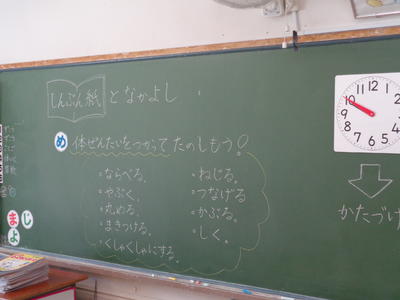 しんぶん紙となかよし
め 体ぜんたいをつかってたのしもう!
・ならべる。
・やぶく。
・丸める。
・まきつける。
・くしゃくしゃにする。
・ねじる。
・つなげる
・かぶる。
・しく。
12
1
2
3
4
5
6
7
8
9
10
11
かたづけ
ま
じ
よ